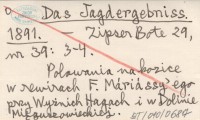 Das Jagdergebniss.
1891. — Zipser Bote 29,
nr 39: 3-4.
Polowania na kozice
w rewirach F. Máriássy'ego
przy Wyżnich Hagach i w Dolinie
Mięguszowieckiej.